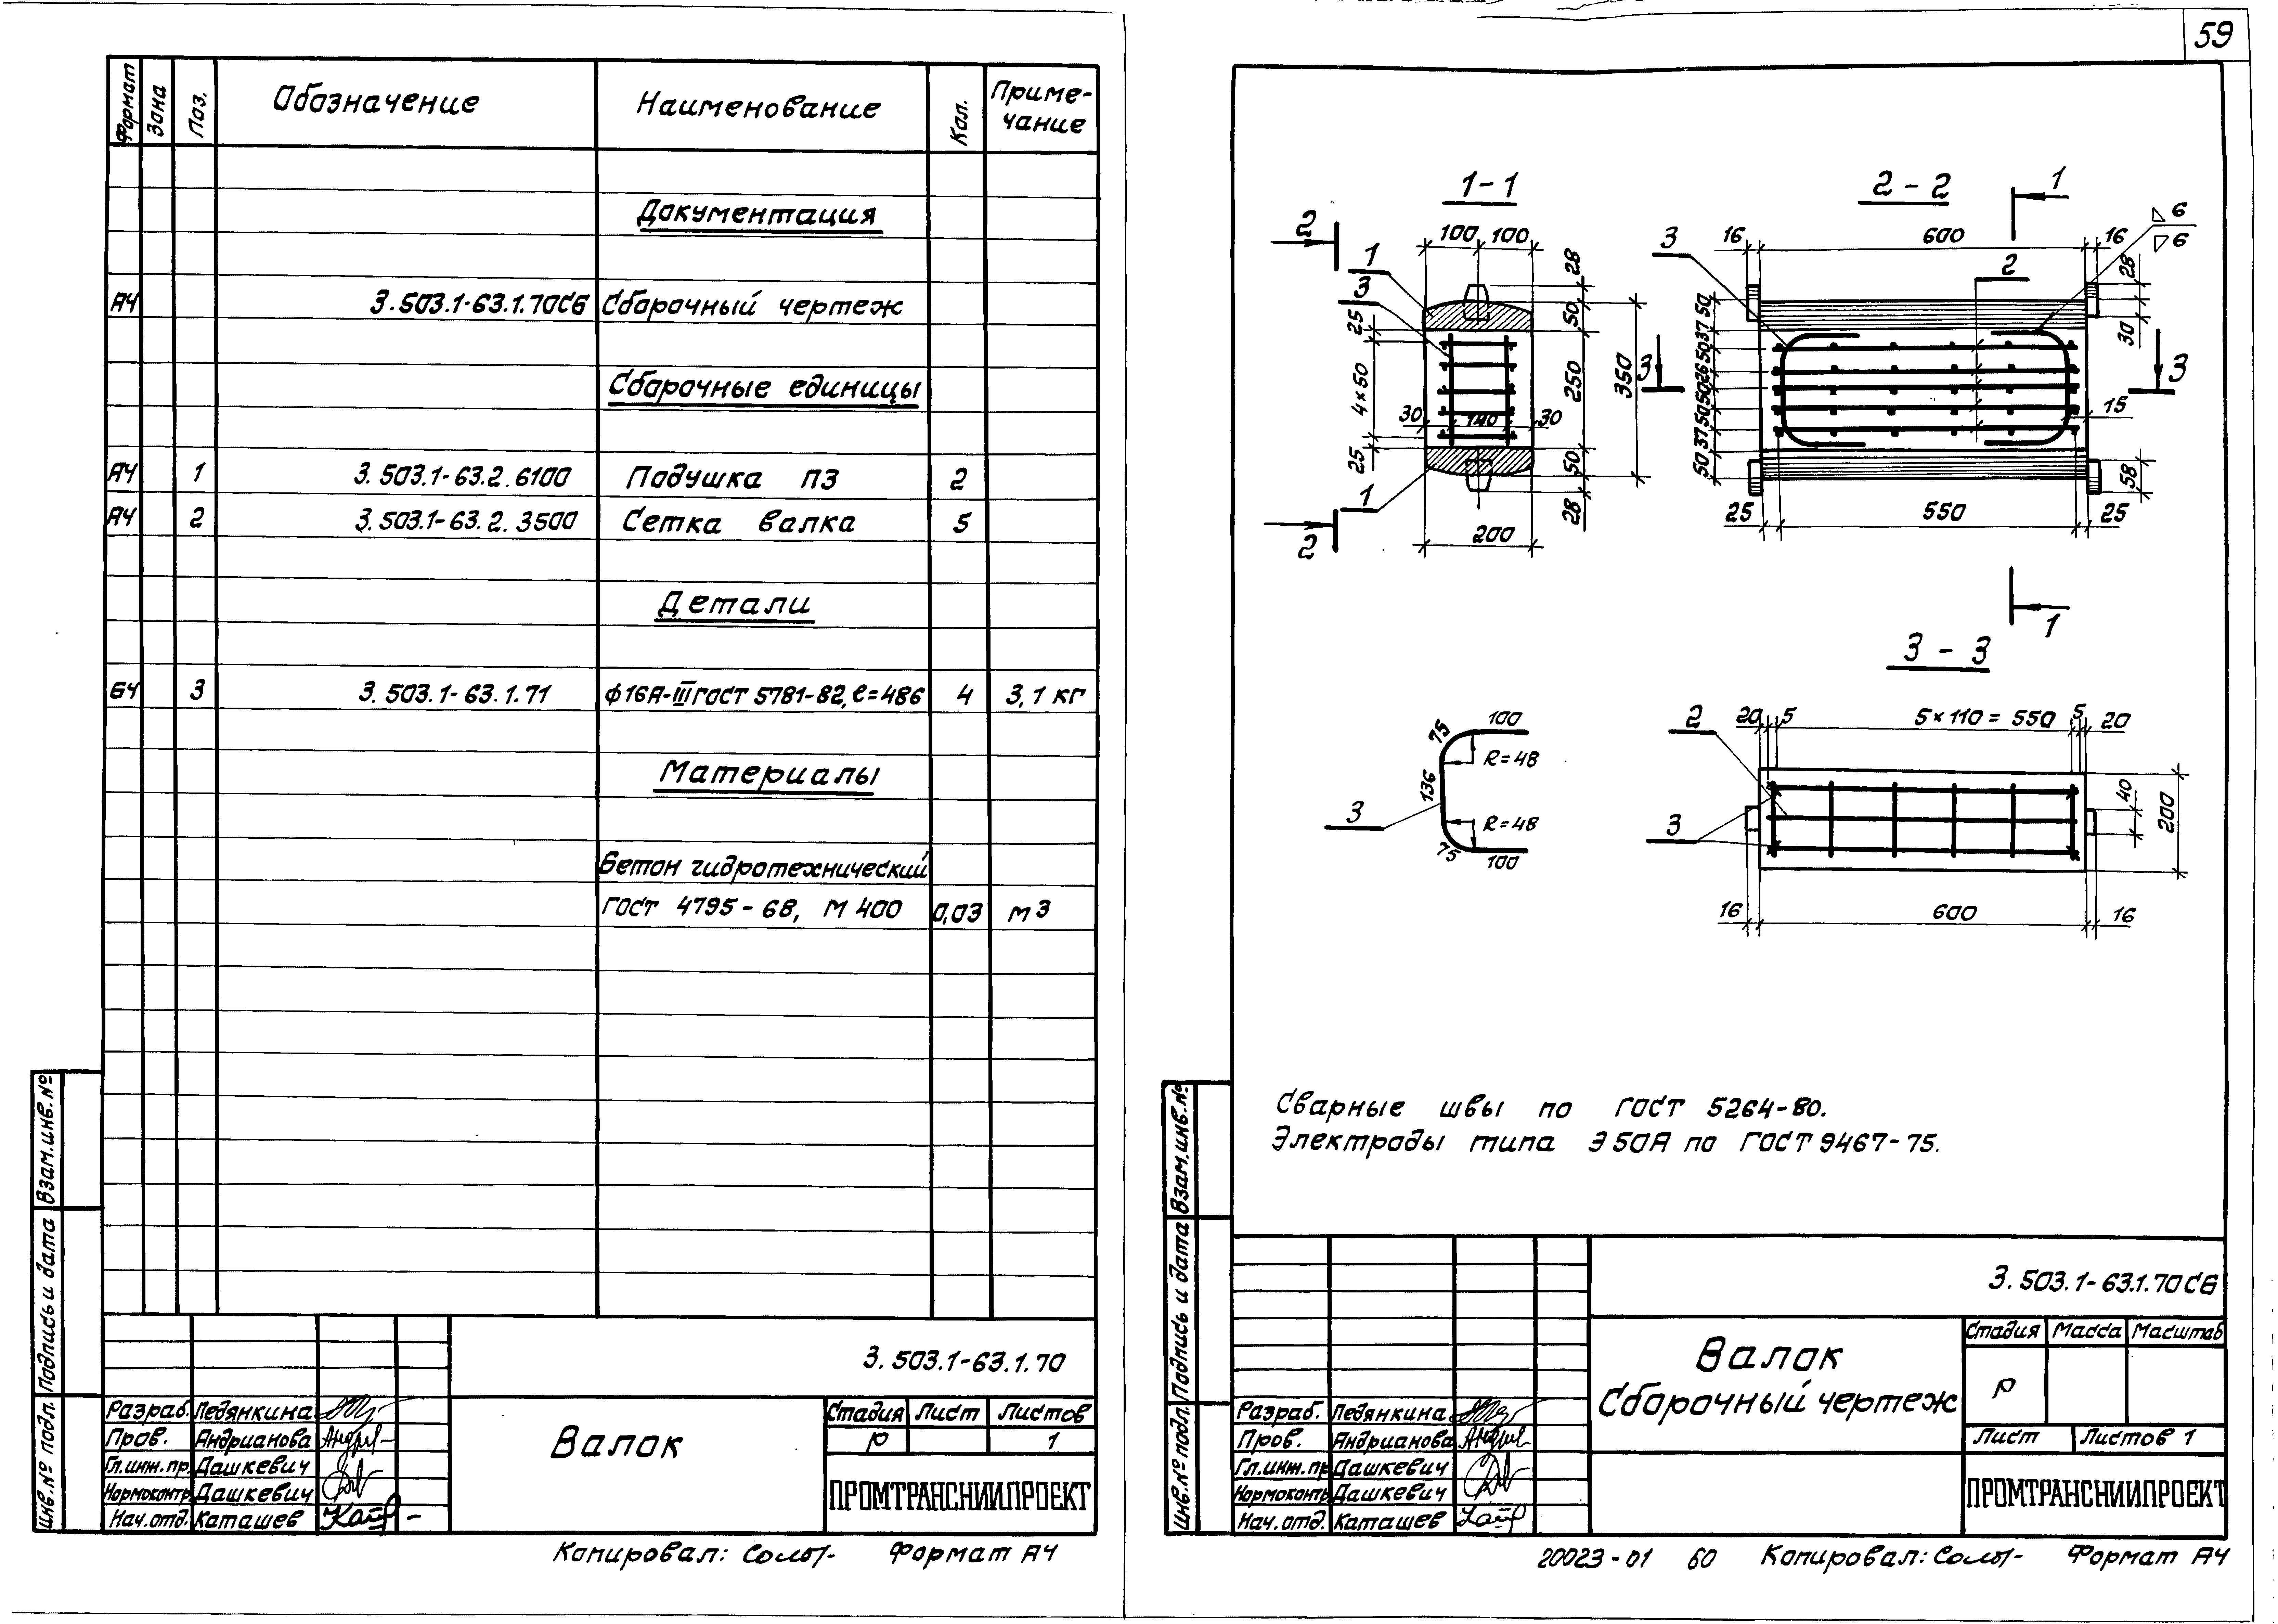 59
Формат
Зона
Поз.
Обозначение
Наименование
Кол.
Приме-
чание
Документация
А4 3.503.1-63.1.70СБ Сборочный чертеж
Сборочные единицы
А4 1 3.503.1-63.2.6100 Подушка П3 2
А4 2 3.503.1-63.2.3500 Сетка валка 5
Детали
БЧ 3 3.503.1-63.1.71 ф16А-III ГОСТ 5781-82, ℓ=486 4 3,1 кг
Материалы
Бетон гидротехнический
ГОСТ 4795-68, М 400 0,03 м3
Взам.инв.№
Подпись и дата
Инв.№ подл.
3.503.1-63.1.70
Разраб. Ледянкина
Пров. Андрианова
Гл.инж.пр. Дашкевич
Нормоконтр. Дашкевич
Нач.отд. Каташев
Валок
Стадия Лист Листов
Р 1
ПРОМТРАНСНИИПРОЕКТ
Копировал: Формат А4
1-1
2
100 100
28
1
3
50
25
4×50
250
350
30 140 30
25
50
1
28
2
200
2-2
1
6
6
16 600 16
3
2
28
30
50
37
50
26
50
50
50
37
50
3
3
15
58
25 550 25
1
3-3
100
75
R=48
136
3
R=48
75
100
2
20 5 5×110=550 5 20
40
200
3
16 600 16
Сварные швы по ГОСТ 5264-80.
Электроды типа Э50А по ГОСТ 9467-75.
Взам.инв.№
Подпись и дата
Инв.№ подл.
3.503.1-63.1.70СБ
Валок
Сборочный чертеж
Стадия Масса Масштаб
Р
Лист Листов 1
Разраб. Ледянкина
Пров. Андрианова
Гл.инж.пр Дашкевич
Нормоконтр. Дашкевич
Нач.отд. Каташев
ПРОМТРАНСНИИПРОЕКТ
20023-01 60 Копировал: Формат А4